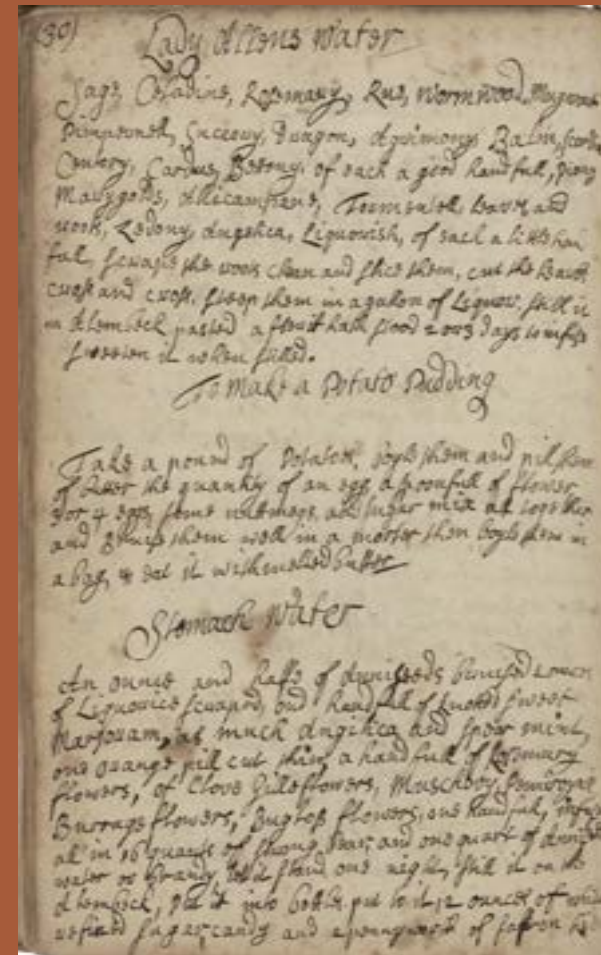 (30)
Lady Allens water
Sage, Celadine, Rosemary, Rue, wormwood, Mugwort
Pimpernell, Succory, Dragon, Agrimony Balm,
Century, Cardus, Betony, of each a good handfull, Piony
Marygolds, Allicampane, Tormentell leaves and
roots, Angelica, Liquorish, of each a little han
ful, scrape the roots clean and slice them, cut the leaves
cross and cross, steep them in a galon of Liquor still it
in Alembeck pasted after it hath stood 2 or 3 days
sweeten it when stilled.
To make a Potato Pudding
Take a pound of Potatos, boyle them and pill them
of butter the quantity of an egg a spoonfull of flower
3 or 4 eggs some nutmegs, and sugar mix all together
and bruise them well in a morter then boyle them in
a bag, & eat it with melted butter
Stomach water
An ounce and halfe of Anniseeds bruised 2 ounces
of Liquorice scraped, one handfull of knotted sweet
Marjoram, as much Angelica and spear mint,
one orange pill cut thin, a handfull of Rosemary
flowers, of Clove Gilleflowers,
Burrage flowers, Buglos flowers, one handful, infuse
all in 16 quarts of strong bear, and one quart of
water or brandy, let it stand one night, still it
Alembeck, put it into bottles put to it 12 ounces of white
refined sugar candy and a pennyworth of saffron